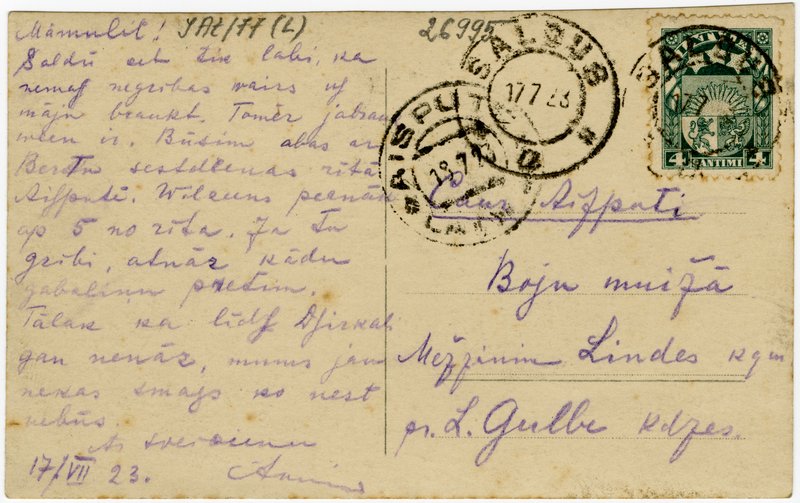 Māmulīt!
JAt/77 (L)
26995
Saldū et tik labi, ka
nemaf negribas wairs uf
māju braukt. Tomēr jabrau
ween ir. Būsim abas ar
Bertu sestdeenas rītā
Aifputē. Wilzeens peenāk
ap 5 no rīta. Ja tu
gribi, atnāz kādu
gabaliņu pretim.
Tālak ka līdf Dfirkal
gan nenāz, mums jau
nekas smags ko nest
nebūs.
Ar sweizeenu
17/VII 23.
SALDUS
17 7 23
AISPUTE
18.7.23
LATWIJA
4 SANTIMI 4
Caur Aifputi
Boju muifā
Mežzinim Lindes kgm
pr. L. Gulbe kdzes.